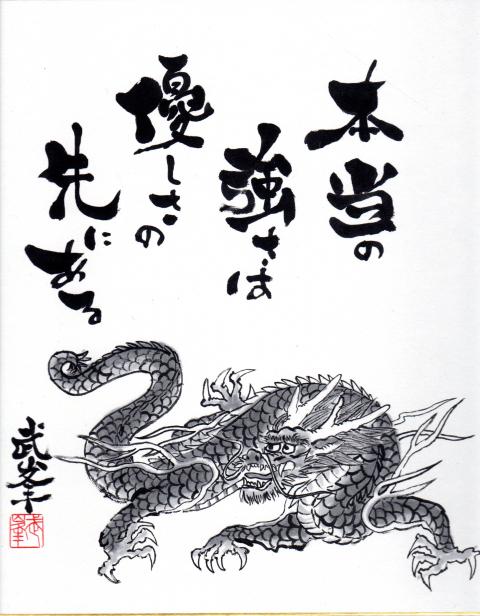 本当の
強さは
優しさの
先に
ある
武峯